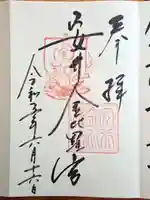 奉拝
安井金比羅宮
令和五年六月十六日